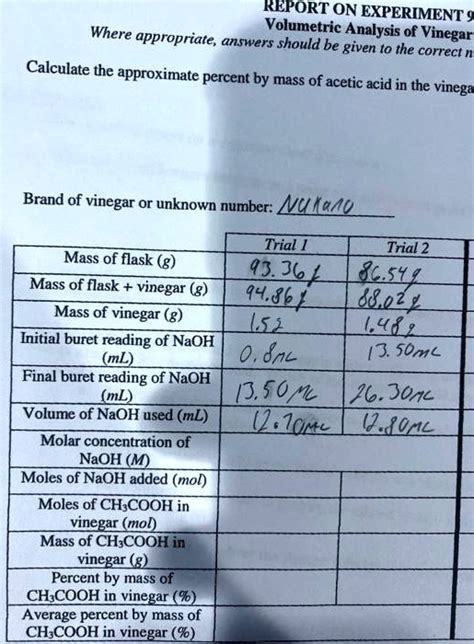 REPORT ON EXPERIMENT 9
Volumetric Analysis of Vinegar
Where appropriate, answers should be given to the correct n
Calculate the approximate percent by mass of acetic acid in the vinega
Brand of vinegar or unknown number: Nakano
Trial 1 Trial 2
Mass of flask (g) 93.36g 86.54g
Mass of flask + vinegar (g) 94.86g 88.02g
Mass of vinegar (g) 1.5g 1.48g
Initial buret reading of NaOH (mL) 0.8mL 13.50mL
Final buret reading of NaOH (mL) 13.50mL 26.30mL
Volume of NaOH used (mL) 12.70mL 12.80mL
Molar concentration of
NaOH (M)
Moles of NaOH added (mol)
Moles of CH₃COOH in
vinegar (mol)
Mass of CH₃COOH in
vinegar (g)
Percent by mass of
CH₃COOH in vinegar (%)
Average percent by mass of
CH₃COOH in vinegar (%)